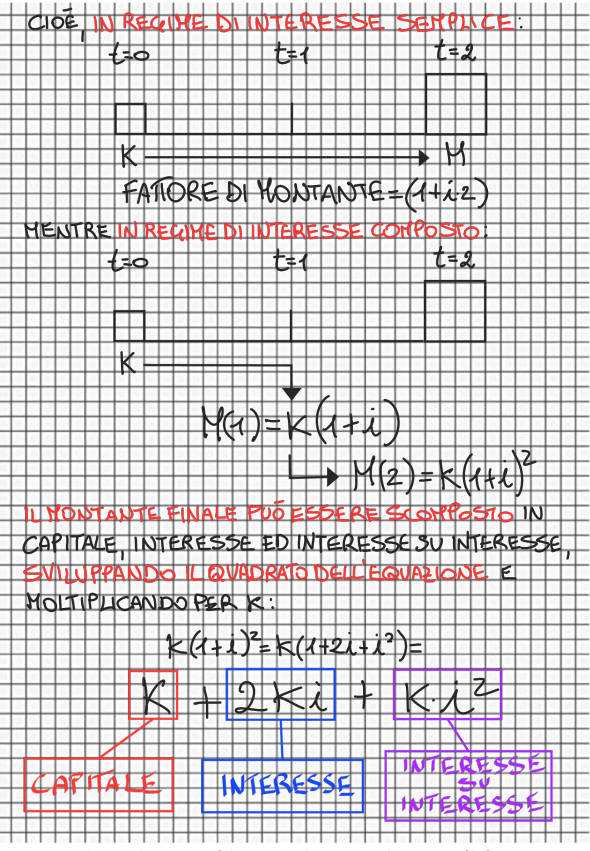 CIOÈ, IN REGIME DI INTERESSE SEMPLICE:
t=0 t=1 t=2
K M
FATTORE DI MONTANTE=(1+i·2)
MENTRE IN REGIME DI INTERESSE COMPOSTO:
t=0 t=1 t=2
K
M(1)=K(1+i)
M(2)=K(1+i)²
IL MONTANTE FINALE PUÒ ESSERE SCOMPOSTO IN
CAPITALE, INTERESSE ED INTERESSE SU INTERESSE,
SVILUPPANDO IL QUADRATO DELL'EQUAZIONE E
MOLTIPLICANDO PER K:
K(1+i)²=K(1+2i+i²)=
K + 2Ki + K·i²
CAPITALE
INTERESSE
INTERESSE
SU
INTERESSE